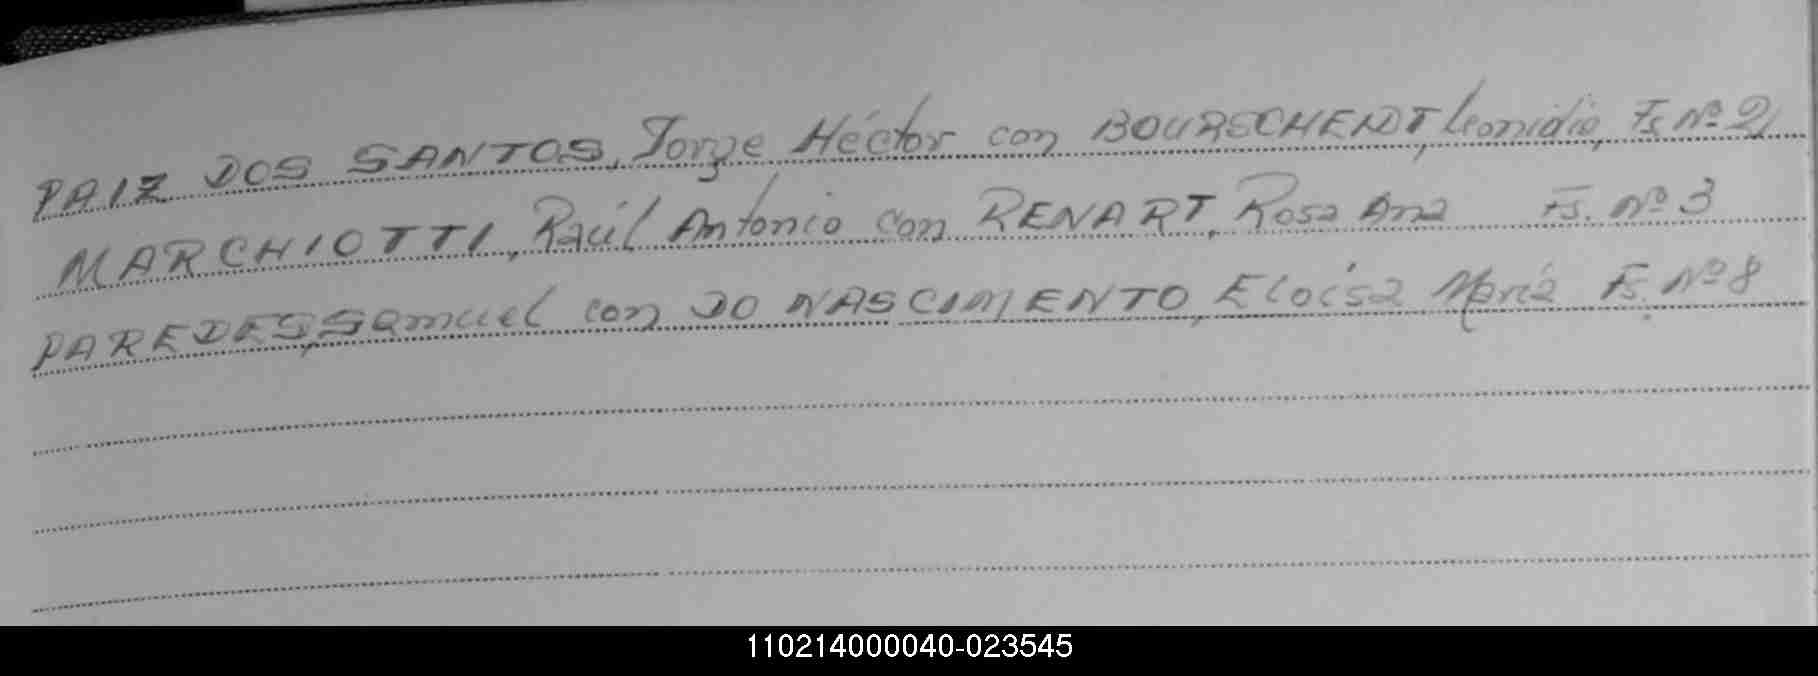 PAIZ DOS SANTOS, Jorge Héctor con BOURSCHEIDT, Leonidia, Fs Nº 2
MARCHIOTTI, Raúl Antonio con RENART, Rosa Ana Fs. Nº 3
PAREDES, Samuel con DO NASCIMENTO, Eloísa María Fs. Nº 8
110214000040-023545